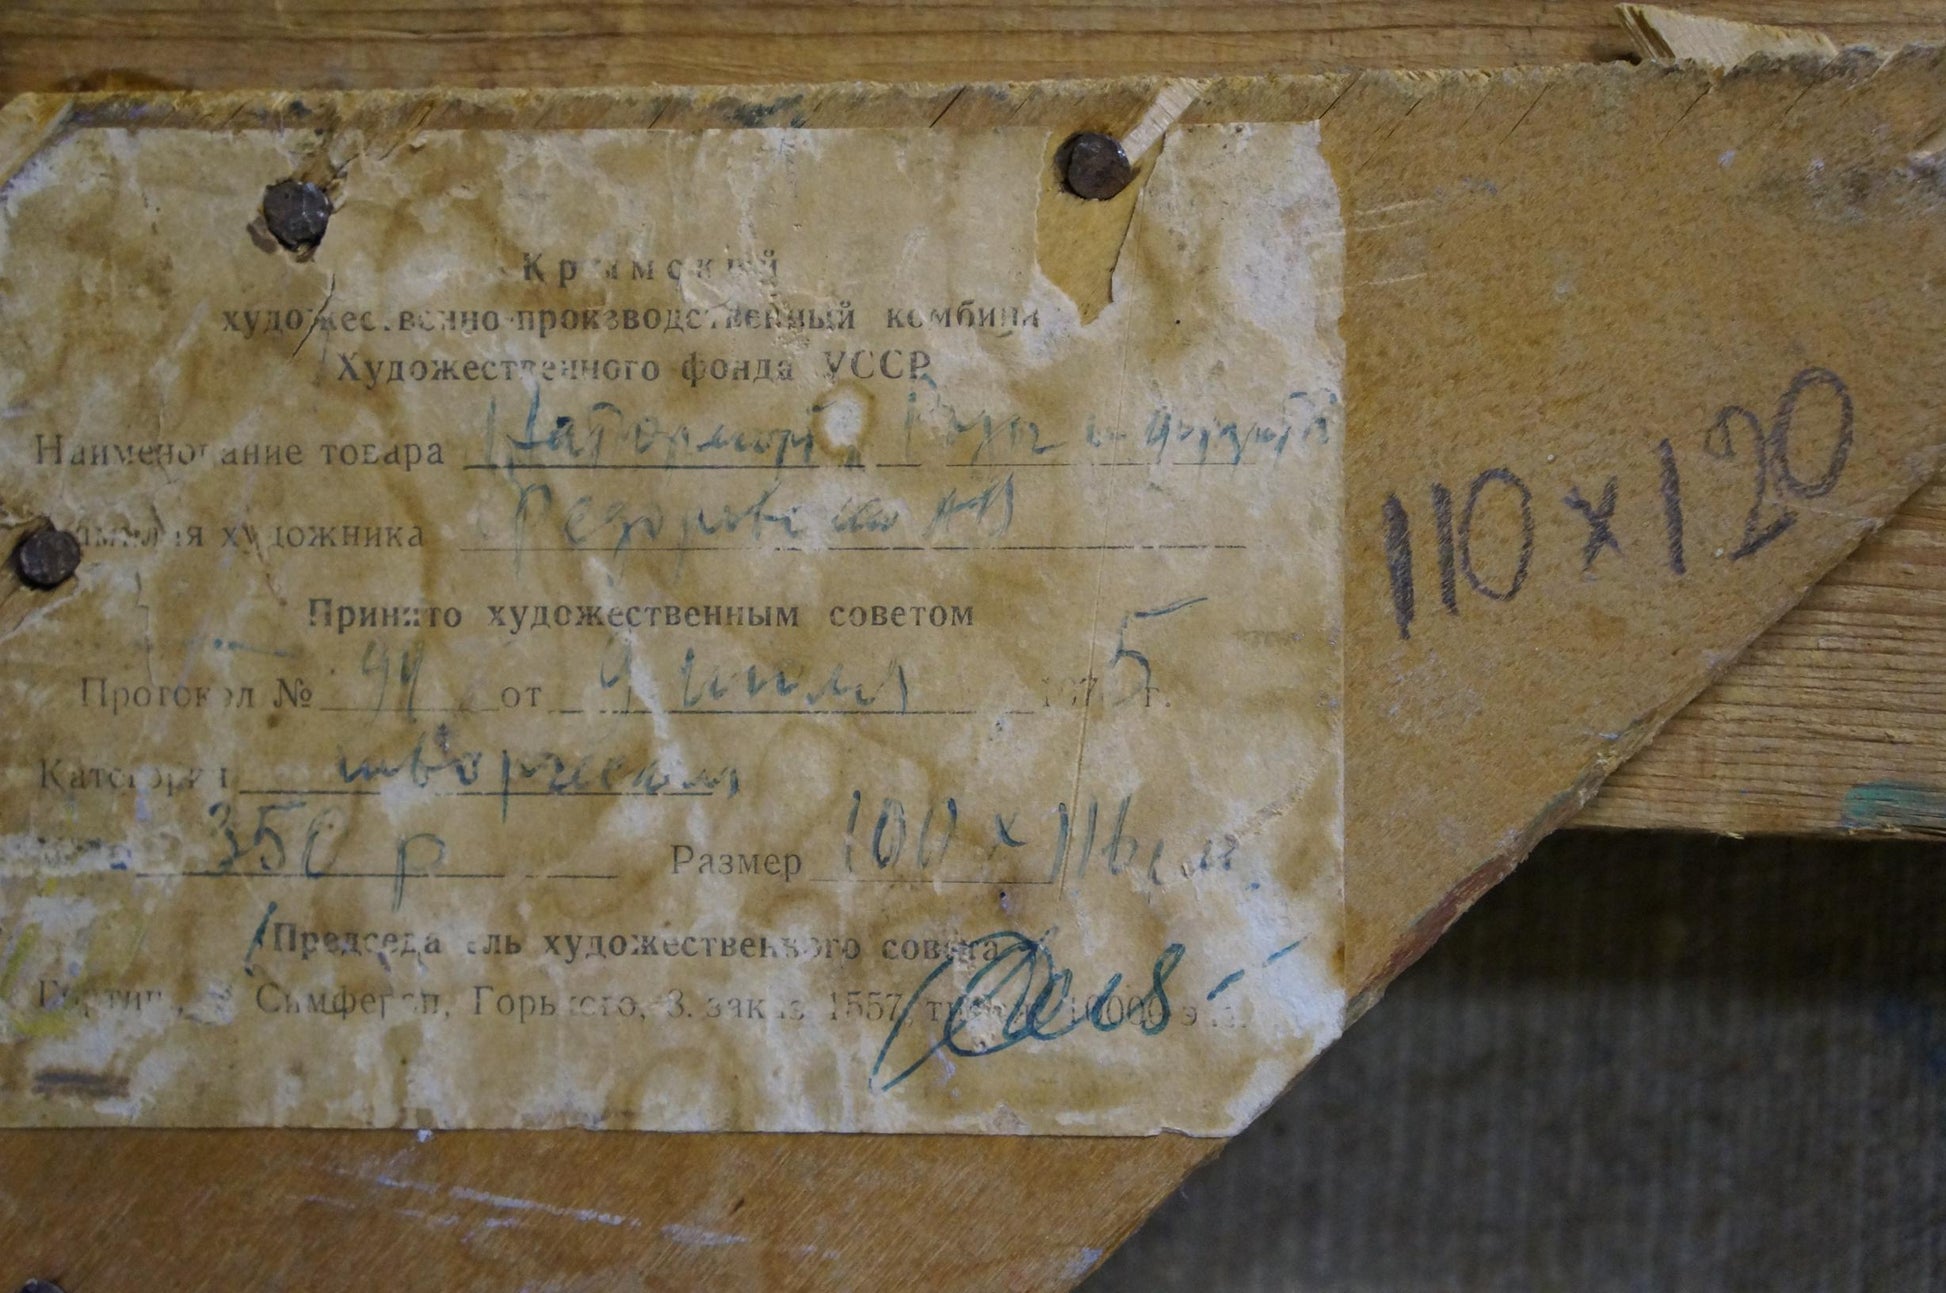 Крымский
художественно-производственный комбина
Художественного фонда УССР
Наименование товара Натюрморт Розы и фрукты
амилия художника Федорова АВ
Принято художественным советом
Протокол № 94 от 9 июля 1975 г.
Категория творческая
350 р Размер 100 х 116 см.
Председатель художественного совета
Симфероп, Горького, 8. заказ 1557, тираж 10000 экз.
110 х 120